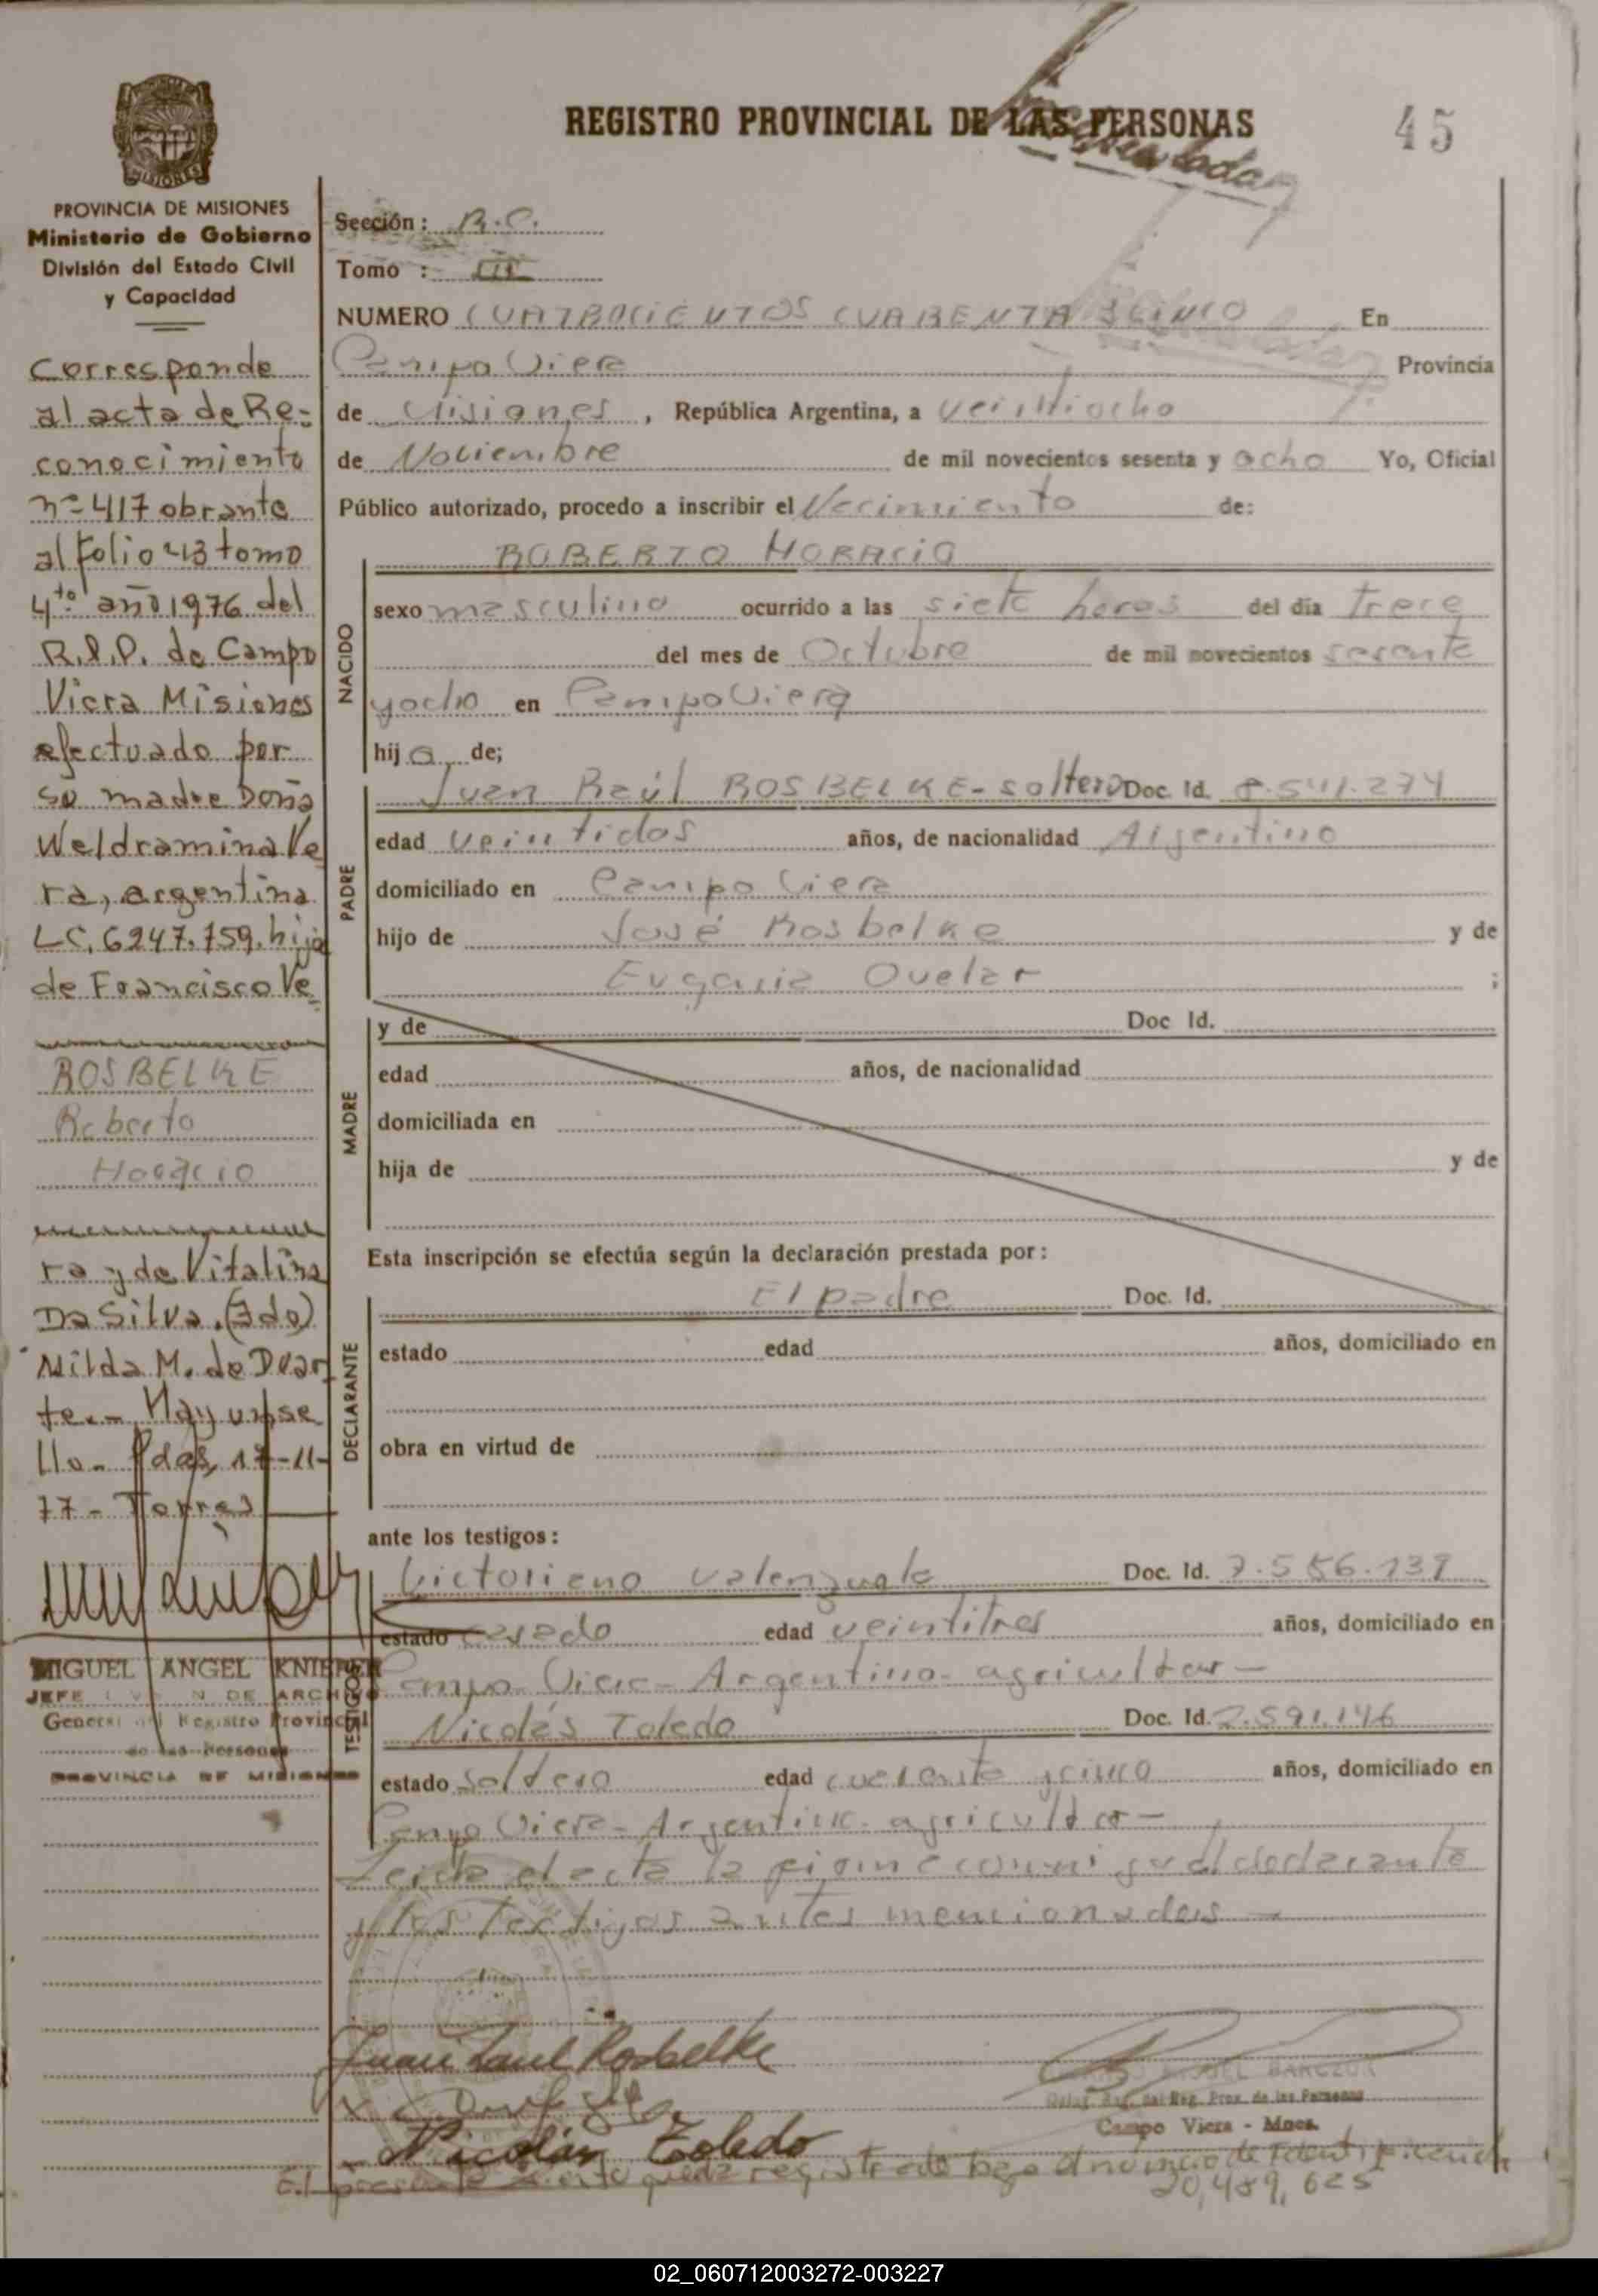 REGISTRO PROVINCIAL DE LAS PERSONAS
45
MISIONES
PROVINCIA DE MISIONES
Ministerio de Gobierno
División del Estado Civil
y Capacidad
Corresponde
al acta de Re-
conocimiento
nº 417 obrante
al folio 413 tomo
4to. año 1976 del
R.P.P. de Campo
Viera Misiones
efectuado por
su madre Doña
Weldramina Ve
ra, argentina
LC. 6247.759. hija
de Francisco Ve
ROSBELKE
Roberto
Horacio
ra y de Vitalina
Da Silva. (Fdo)
Nilda M. de Duar
te.- Hay un se
llo. Pdas, 17-11-
77 - Torres
MIGUEL ANGEL KNIEPER
JEFE DE ARCHIVO
General del Registro Provincial
de las Personas
PROVINCIA DE MISIONES
Sección: R.C.
Tomo : III
NUMERO CUATROCIENTOS CUARENTA Y CINCO En
Campo Viera Provincia
de Misiones, República Argentina, a veintiocho
de Noviembre de mil novecientos sesenta y ocho Yo, Oficial
Público autorizado, procedo a inscribir el Nacimiento de:
NACIDO
ROBERTO HORACIO
sexo masculino ocurrido a las siete horas del día trece
del mes de Octubre de mil novecientos sesenta
y ocho en Campo Viera
hijo de;
PADRE
Juan Raúl ROSBELKE - soltero Doc. Id. 8.541.274
edad veintidos años, de nacionalidad Argentino
domiciliado en Campo Viera
hijo de José Rosbelke y de
Eugenia Ovelar ;
MADRE
y de Doc. Id.
edad años, de nacionalidad
domiciliada en
hija de y de
Esta inscripción se efectúa según la declaración prestada por:
DECLARANTE
El padre Doc. Id.
estado edad años, domiciliado en
obra en virtud de
ante los testigos:
TESTIGOS
Victoriano Valenzuela Doc. Id. 7.556.139
estado casado edad veintitres años, domiciliado en
Campo Viera - Argentino - agricultor -
Nicolás Toledo Doc. Id. 2.591.146
estado soltero edad cuarenta y cinco años, domiciliado en
Campo Viera - Argentino - agricultor -
Leida el acta la firma conmigo el declarante
y los testigos antes mencionados -
Juan Raul Rosbelke
Nicolás Toledo
BARCZUK
Reg. del Reg. Prov. de las Personas
Campo Viera - Mnes.
El presente asiento queda registrado bajo el número de Identificación
20,489,625
02_060712003272-003227